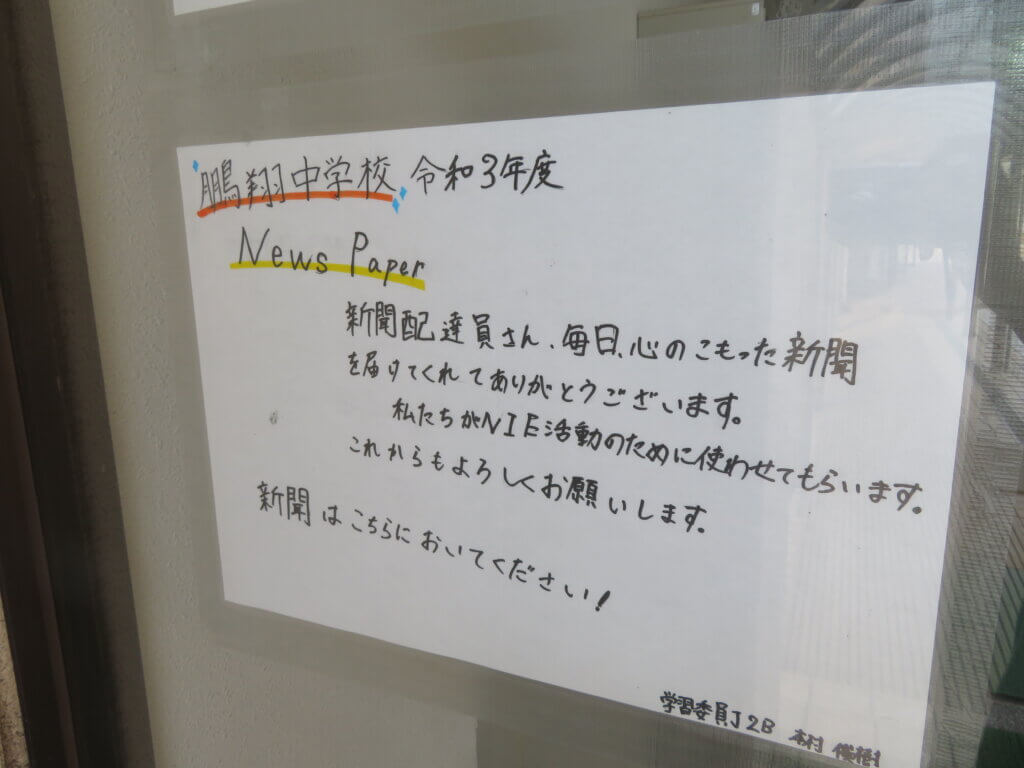 鵬翔中学校 令和3年度
News Paper
新聞配達員さん、毎日、心のこもった新聞
を届けてくれてありがとうございます。
私たちがNIE活動のために使わせてもらいます。
これからもよろしくお願いします。
新聞はこちらにおいてください!
学習委員J2B 木村 俊樹